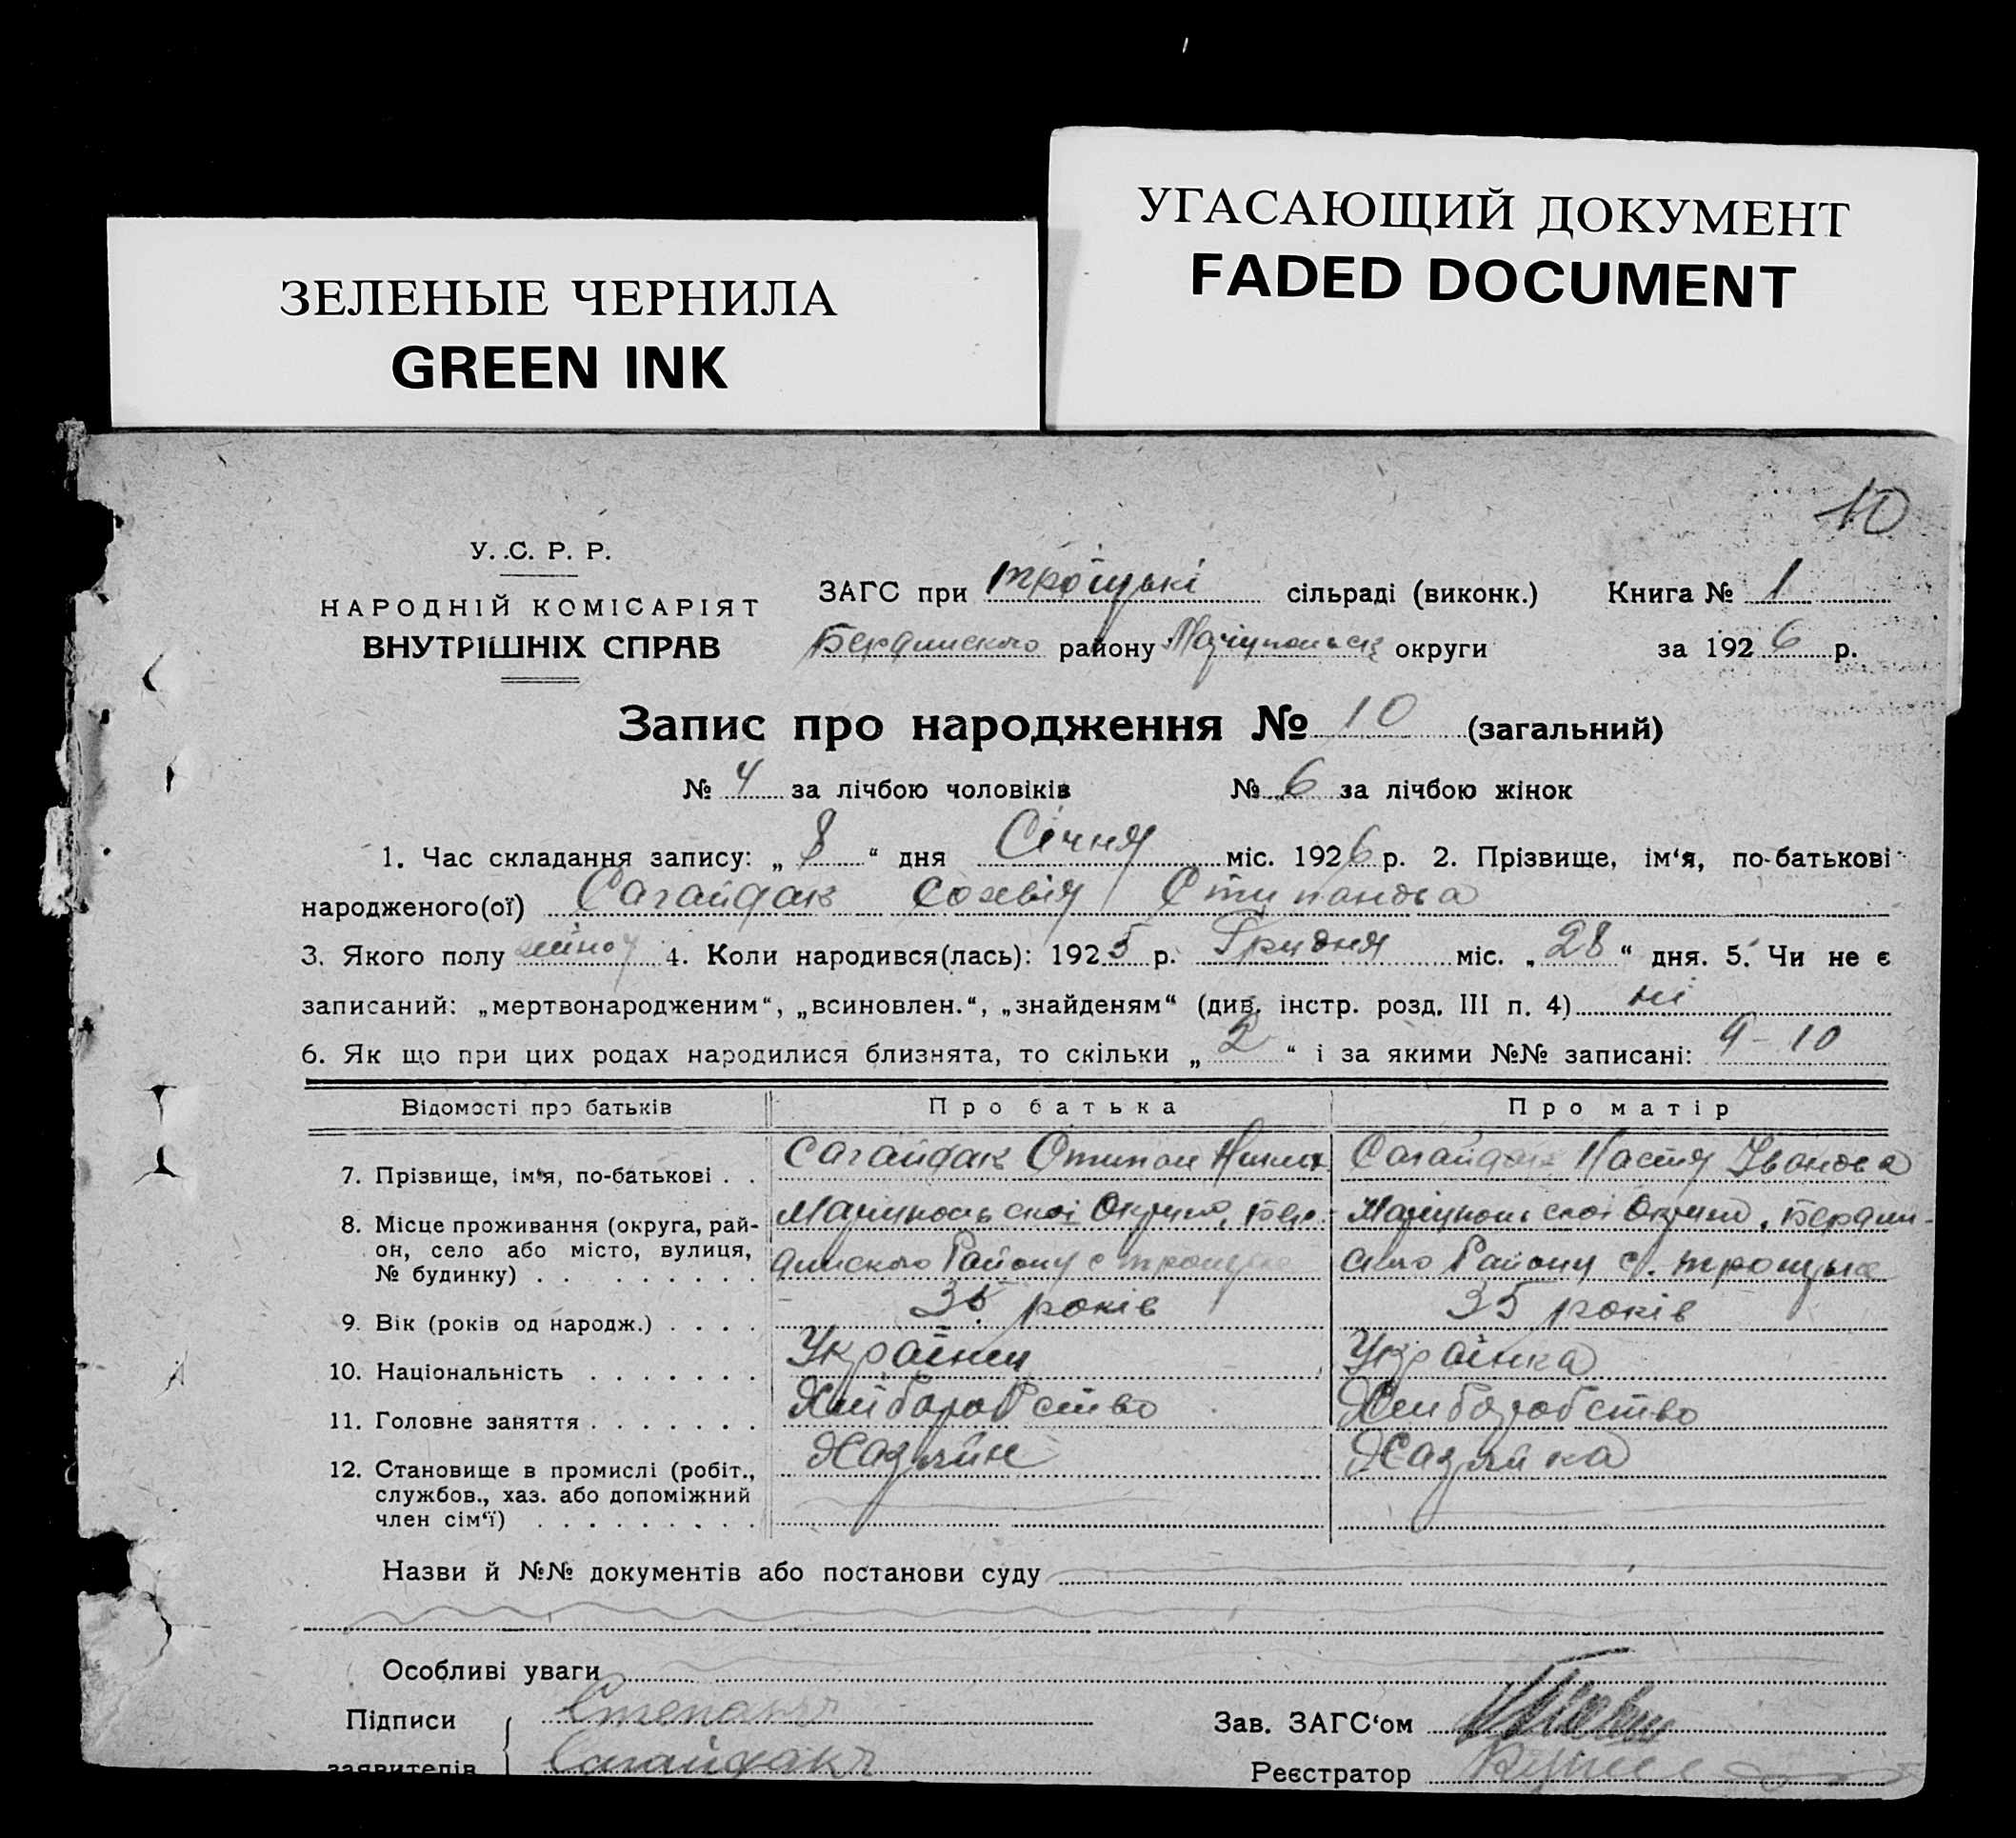 УГАСАЮЩИЙ ДОКУМЕНТ
FADED DOCUMENT
ЗЕЛЕНЫЕ ЧЕРНИЛА
GREEN INK
10
У. С. Р. Р.
НАРОДНІЙ КОМІСАРІЯТ
ВНУТРІШНІХ СПРАВ
ЗАГС при Троїцькі сільраді (виконк.) Книга № 1
району округи за 1926 р.
Запис про народження № 10 (загальний)
№ 4 за лічбою чоловіків № 6 за лічбою жінок
1. Час складання запису: „ 8 “ дня Січня міс. 1926 р. 2. Прізвище, ім‘я, по-батькові
народженого(ої) Сагайдак Сохвія Стипановa
3. Якого полу 4. Коли народився(лась): 1925 р. Грудня міс. „ 28 “ дня. 5. Чи не є
записаний: „мертвонародженим“, „всиновлен.“, „знайденям“ (див. інстр. розд. III п. 4) ні
6. Як що при цих родах народилися близнята, то скільки „ 2 “ і за якими №№ записані: 9-10
Відомості про батьків Про батька Про матір
7. Прізвище, ім‘я, по-батькові . . Сагайдак Стипан Сагайдак Настя Іванова
8. Місце проживання (округа, рай-
он, село або місто, вулиця,
№ будинку) . . . . . . . Району с Району с. Троицька
9. Вік (років од народж.) . . . . 35 років 35 років
10. Національність . . . . . . . Українец Українка
11. Головне заняття . . . . . . . Хлиборобство Хлиборобство
12. Становище в промислі (робіт., Хазяйн Хазяйка
службов., хаз. або допоміжний
член сім‘ї) . . . . . . . . .
Назви й №№ документів або постанови суду
Особливі уваги
Підписи Степанъ Зав. ЗАГС‘ом
заявителів Сагайдакъ Реєстратор